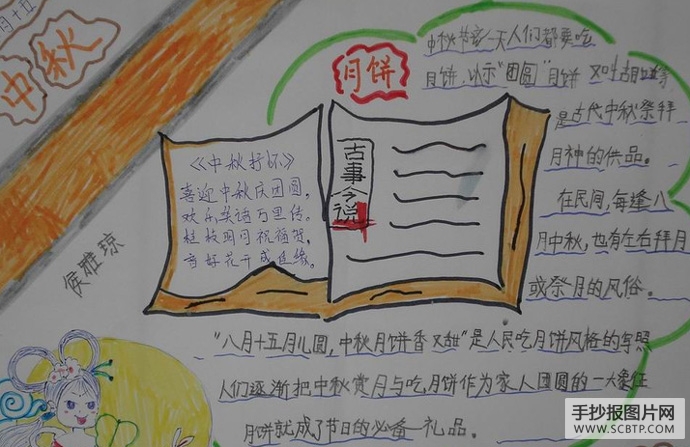 月十五
中秋
月饼
中秋节这一天人们都要吃
月饼,以示"团圆"月饼 又叶胡饼等
是古代中秋祭拜
月神的供品。
在民间,每逢八
月中秋,也有左右拜月
或祭月的风俗。
《中秋抒怀》
喜迎中秋庆团圆,
欢乐笑语万里传。
桂枝明月祝福贺,
月好花开成连缘。
古事今说
侯雅琼
"八月十五月儿圆,中秋月饼香又甜"是人民吃月饼风格的写照
人们逐渐把中秋赏月与吃月饼作为家人团圆的一大象征
月饼就成了节日的必备一礼品。
手抄报图片网
WWW.SCBTP.COM